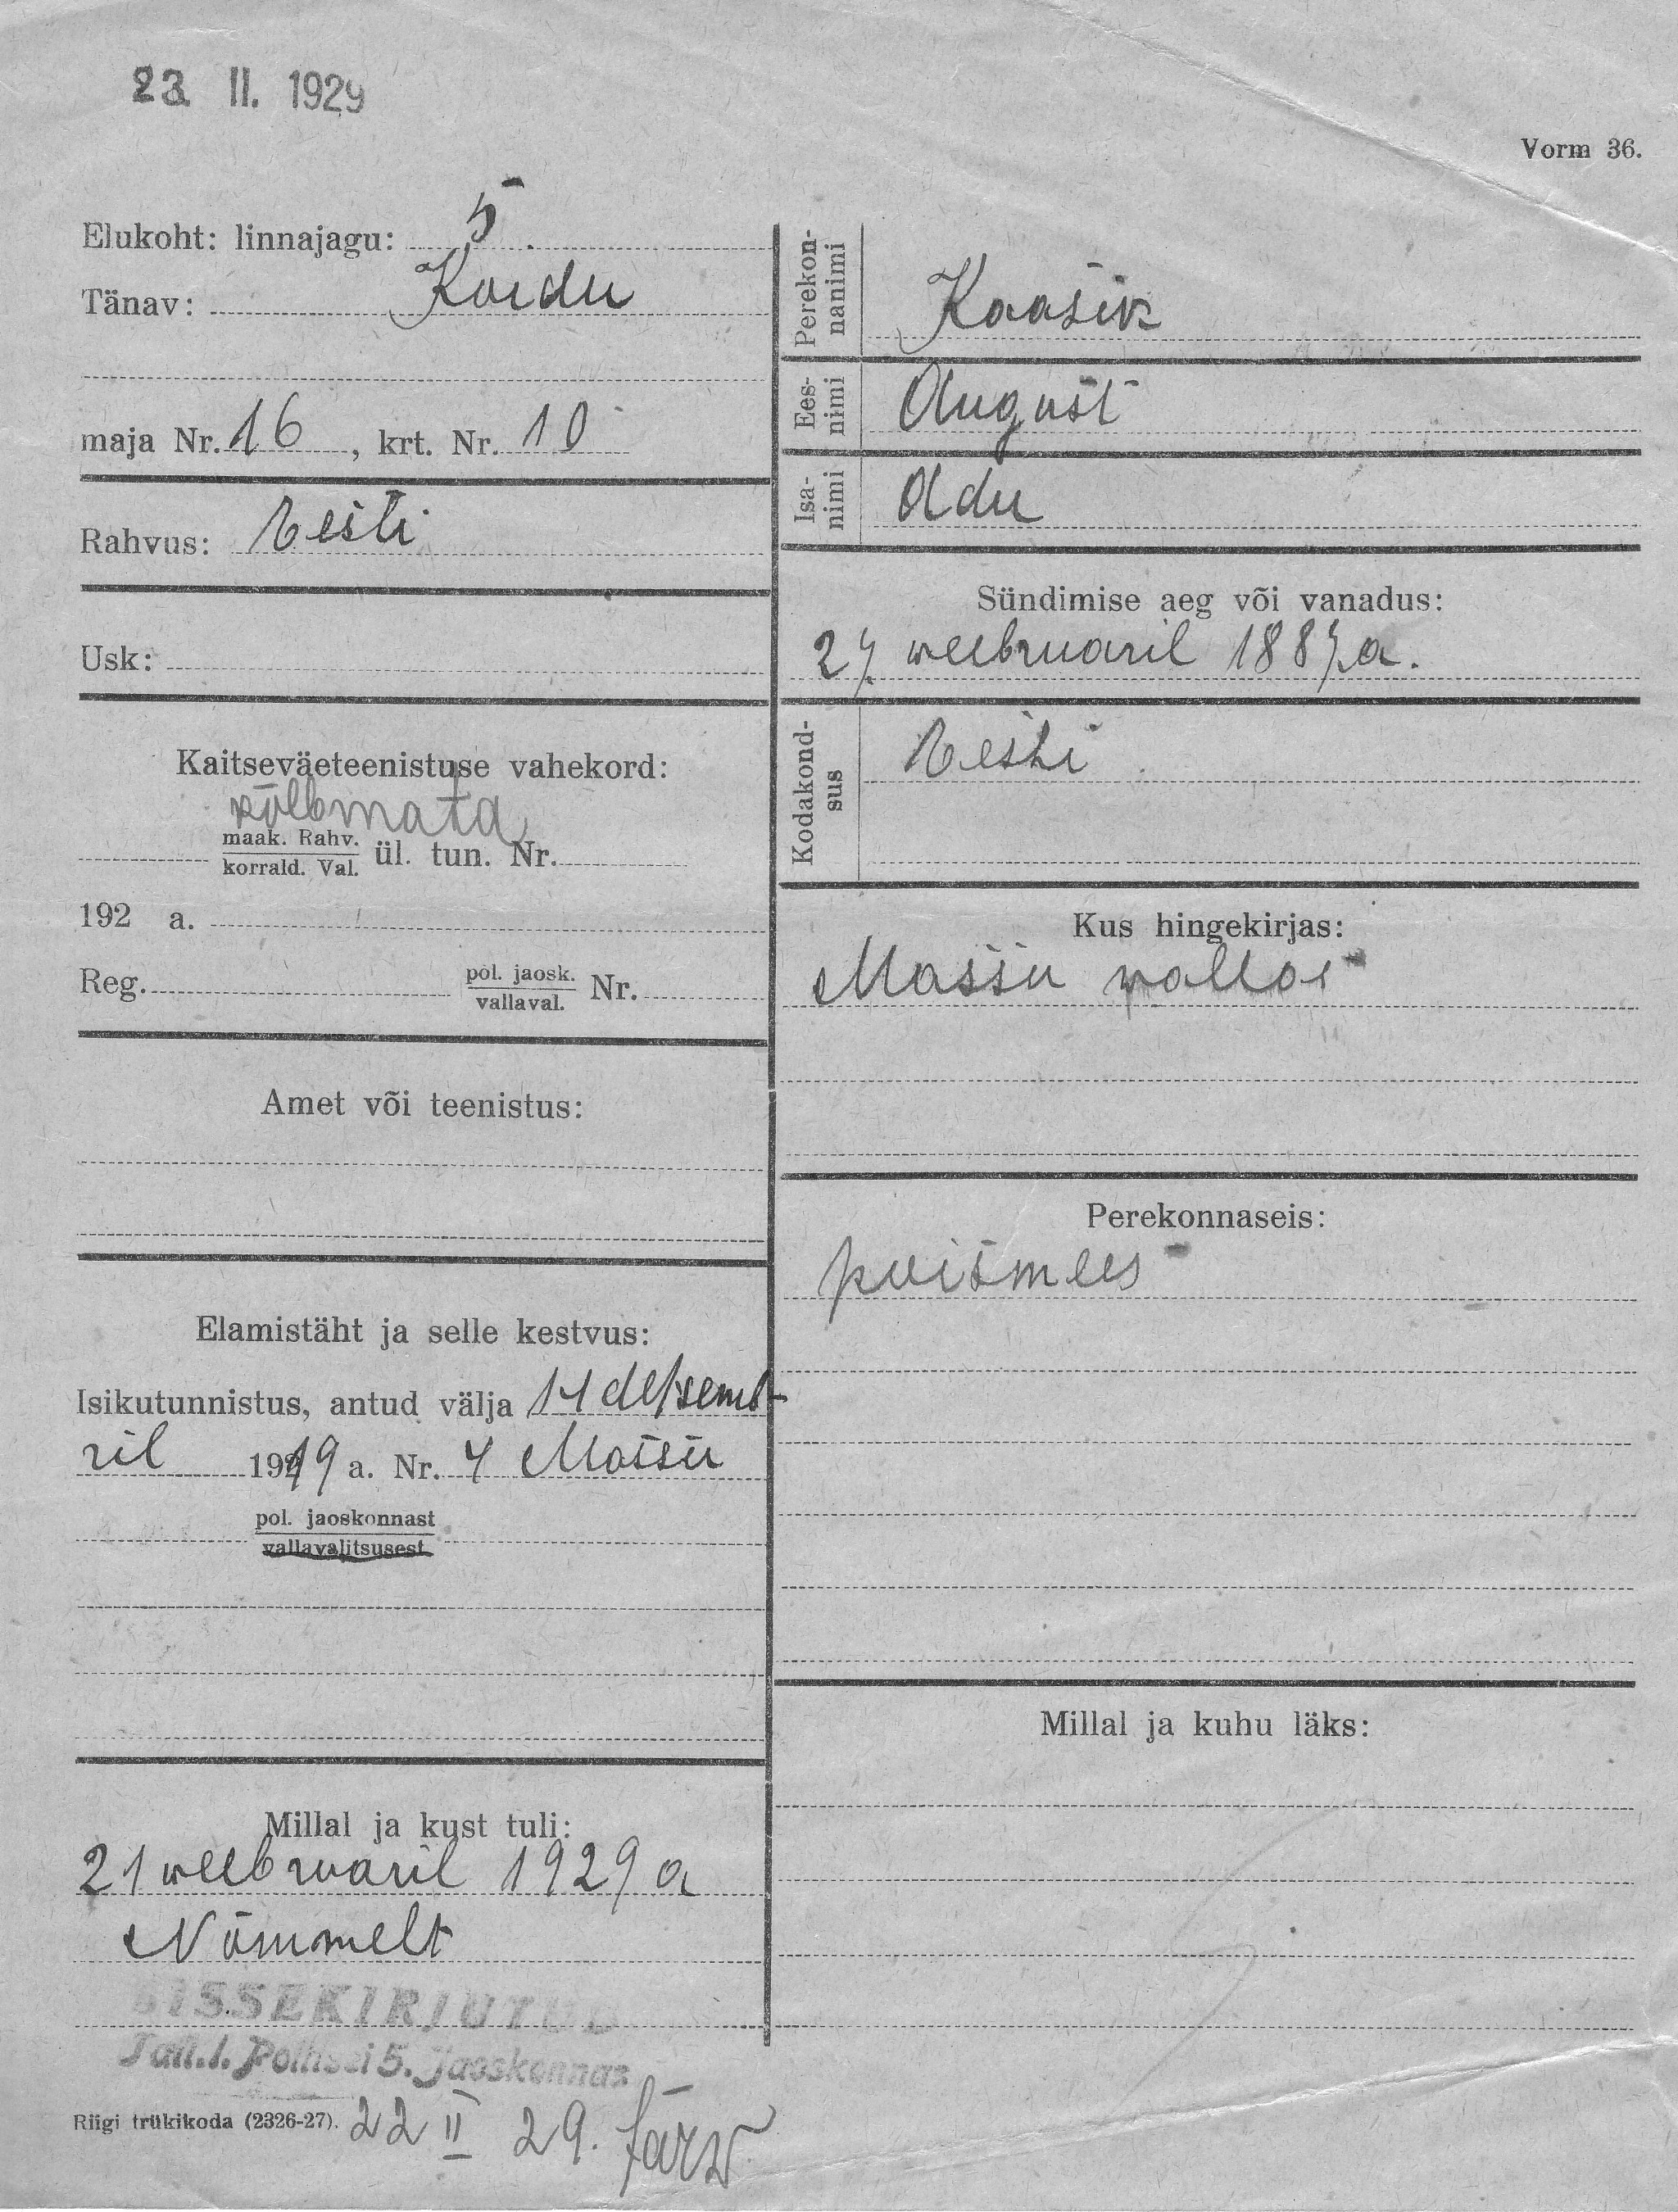 23. II. 1929
Vorm 36.
Elukoht: linnajagu: 5.
Tänav: Koidu
maja Nr. 16, krt. Nr. 10
Rahvus: Eesti
Usk:
Kaitseväeteenistuse vahekord:
kõlbmata
maak. Rahv.
korrald. Val. ül. tun. Nr.
192 a.
Reg. pol. jaosk. Nr.
vallaval.
Amet või teenistus:
Elamistäht ja selle kestvus:
Isikutunnistus, antud välja 14 detsemb-
ril 1919 a. Nr. 4 Massu
pol. jaoskonnast
vallavalitsusest
Millal ja kust tuli:
21 weebruaril 1929 a
Nõmmelt
SISSEKIRJUTUD
Tall.l. Politsei 5. Jaoskonnas
Riigi trükikoda (2326-27). 22 II 29.
Perekon-
nanimi
Kaasik
Ees-
nimi
August
Isa-
nimi
Adu
Sündimise aeg või vanadus:
27. weebruaril 1887.a.
Kodakond-
sus
Eesti
Kus hingekirjas:
Massu wallas
Perekonnaseis:
poismees
Millal ja kuhu läks: